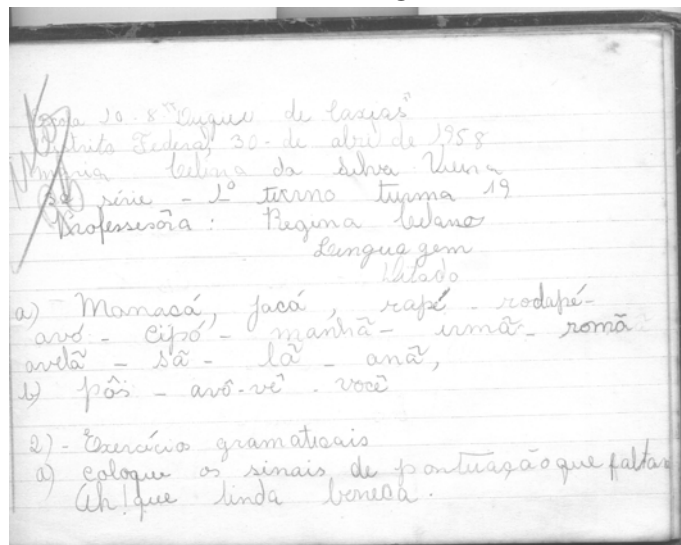 Escola 10-8 "Duque de Caxias"
Distrito Federal, 30 de abril de 1958
Maria Celina da Silva Vieira
série - 1º turno turma 19
Professora: Regina
Linguagem
Ditado
a) Manacá, jacá, rapé - rodapé -
avó - cipó - manhã - irmã - romã
avelã - sã - lã - anã,
b) pôs - avô - vê - você
2) - Exercícios gramaticais
a) coloque os sinais de pontuação que faltam
Ah! que linda boneca.